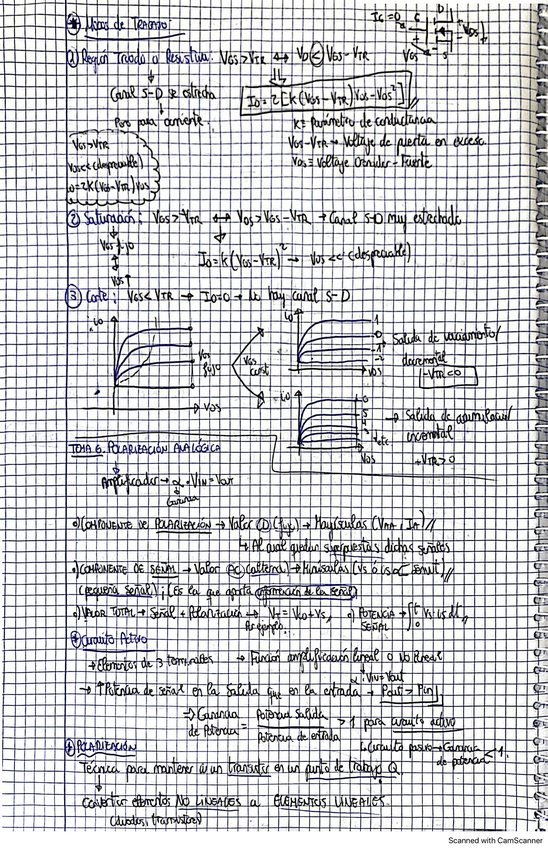 Modos de Trabajo:
IG=0
D
G
S
VGS
VDS
① Región Triodo o Resistiva: VGS>VTR ↔ VD < VGS-VTR
Canal S-D se estrecha
ID = 2[K(VGS-VTR)VDS-VDS²]
Pero pasa corriente.
K = Parámetro de conductancia
VGS>VTR
VGS-VTR → Voltaje de puerta en exceso
VDS<< (despreciable)
VDS = Voltaje Drenador-Fuente
iD=2K(VGS-VTR)VDS
② Saturación: VGS>VTR ↔ VDS>VGS-VTR → Canal S-D muy estrechado
VGS fijo
ID=K(VGS-VTR)² → VDS << (despreciable)
VDS↑
③ Corte: VGS<VTR → ID=0 → No hay canal S-D
iD
VGS fijo
VDS
VGS const
iD
1
0
-1
-2
VDS
Salida de vaciamiento/
decremental
-VTR<0
iD
6
5
4
etc
VDS
→ Salida de acumulación/
incremental
+VTR>0
TEMA 6. POLARIZACIÓN ANALÓGICA
Amplificador → α·VIN=VOUT
Ganancia
•) COMPONENTE DE POLARIZACIÓN → Valor D (fijo) → Mayúsculas (VAA, IA)
↳ Al cual quedan superpuestas dichas señales
•) COMPONENTE DE SEÑAL → Valor AC (alterna) → Minúsculas (Vs ó is
(pequeña señal) ¡(Es la que aporta información de la señal)
•) VALOR TOTAL → Señal + Polarización → VT=VCD+Vs, •) POTENCIA → ∫ Vs·is dt
Por ejemplo...
SEÑAL
Circuito Activo
→ Elementos de 3 terminales → Función amplificación lineal o no lineal
α·VIN=VOUT
→ ↑ Potencia de señal en la salida que en la entrada → Pout > Pin
⇒ Ganancia de Potencia = Potencia Salida / Potencia de entrada > 1 para circuito activo
↳ Circuito pasivo → Ganancia de potencia < 1.
POLARIZACIÓN
Técnica para mantener a un transistor en un punto de trabajo Q.
Convertir elementos NO LINEALES a ELEMENTOS LINEALES.
(diodos, transistores)
Scanned with CamScanner